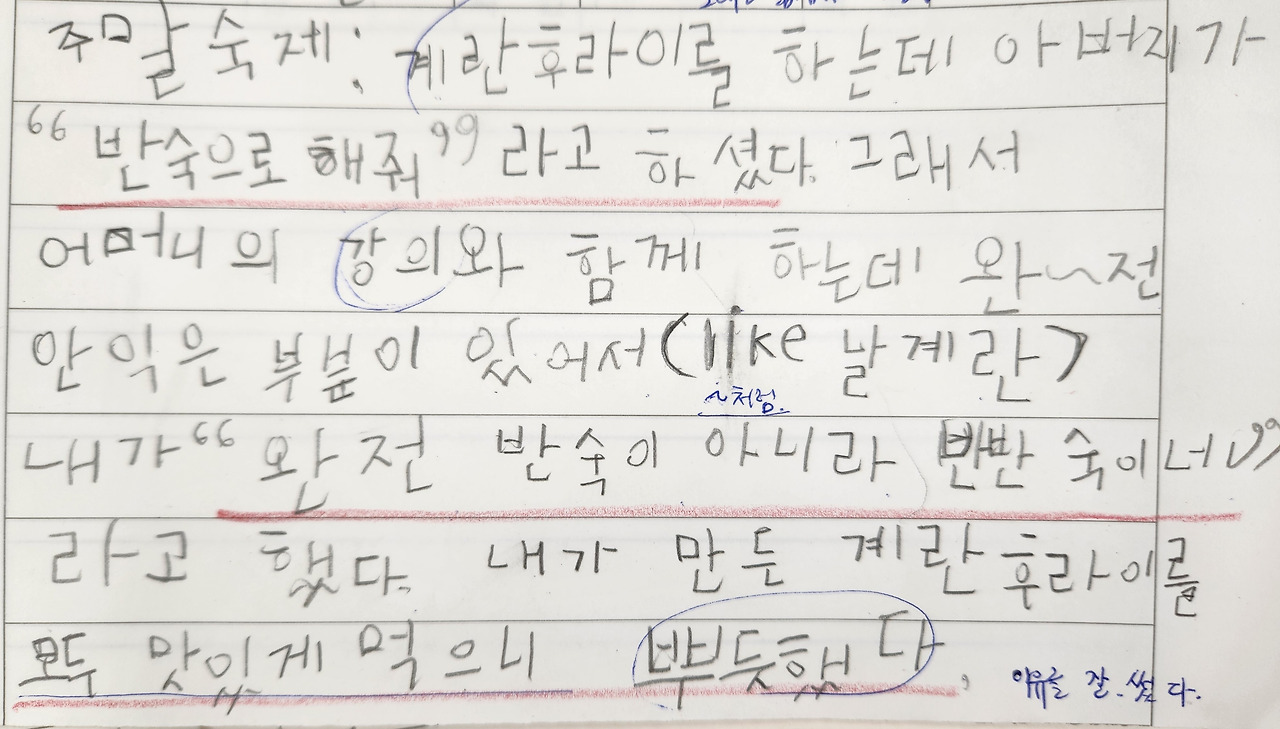 주말숙제: 계란후라이를 하는데 아버지가
“반숙으로 해줘” 라고 하셨다. 그래서
어머니의 강의와 함께 하는데 완~전
안 익은 부분이 있어서(like 날계란)
~처럼.
내가 “완전 반숙이 아니라 반반숙이네”
라고 했다. 내가 만든 계란후라이를
모두 맛있게 먹으니 뿌듯했다.
이유를 잘 썼다.